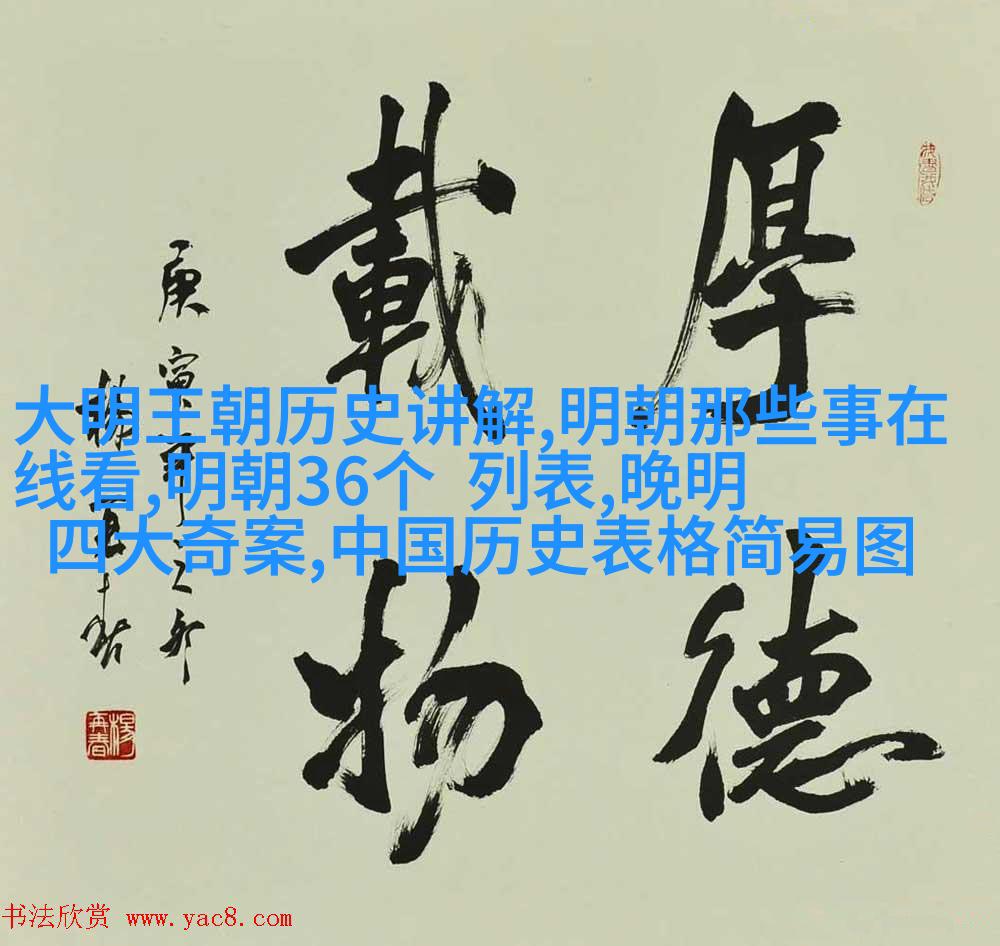 厚德
載物
庚寅年之夏
楊再春
大明王朝历史讲解,明朝那些事在
线看,明朝36个 列表,晚明
四大奇案,中国历史表格简易图
楊再春
书法欣赏 www.yac8.com